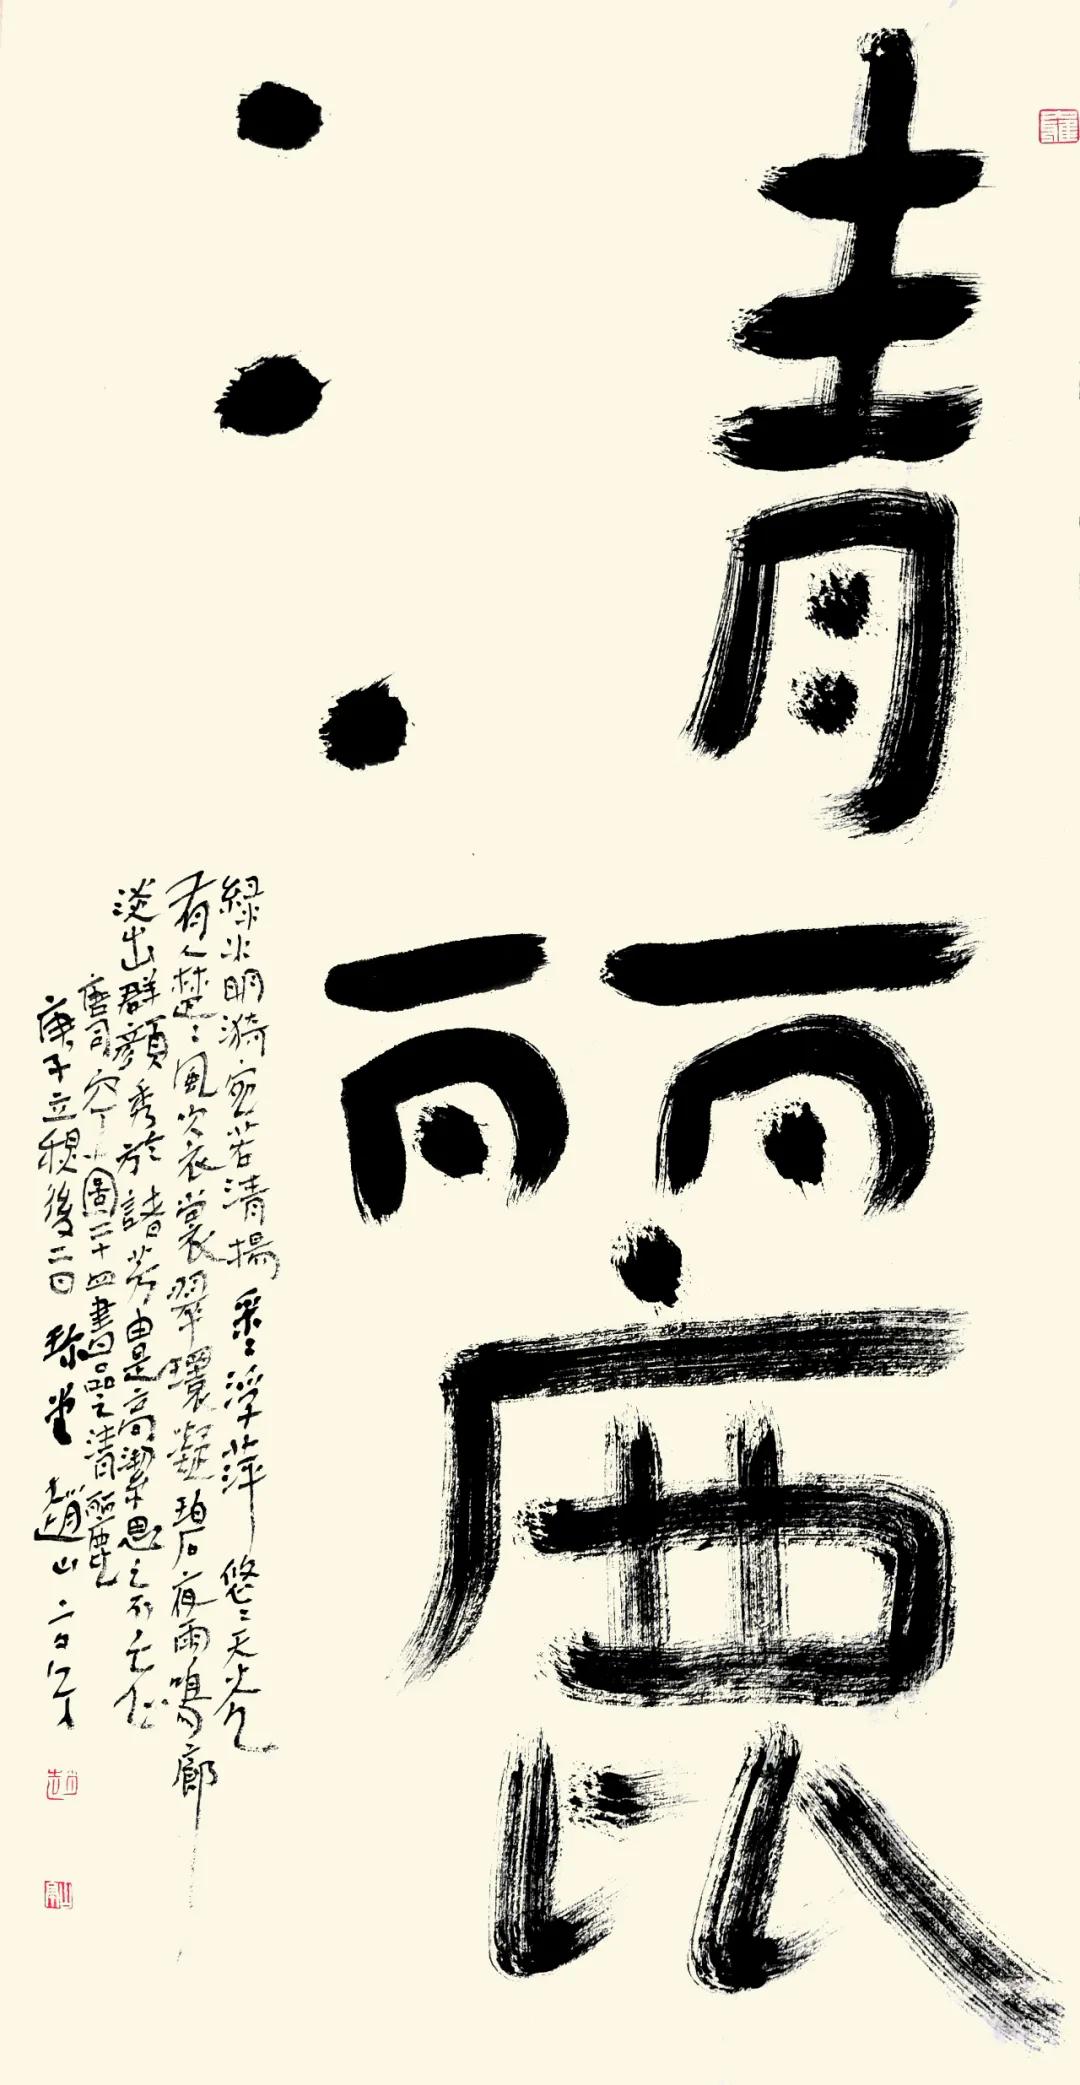 清麗
綠水明漪宛若清揚采〻浮萍悠〻天光
有人楚〻風吹衣裳翠環凝碧夜雨鳴廊
淡出群顏秀於諸芳由是高潔思之不忘
唐司空圖二十四書品之清麗
庚子立穐後二日 珍堂 趙山亭